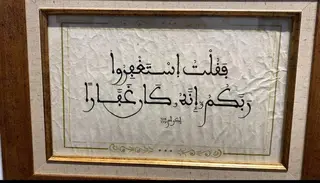 فَقُلْتُ اِسْتَغْفِرُوا
رَبَّكُمْ إِنَّهُ كَانَ غَفَّارًا